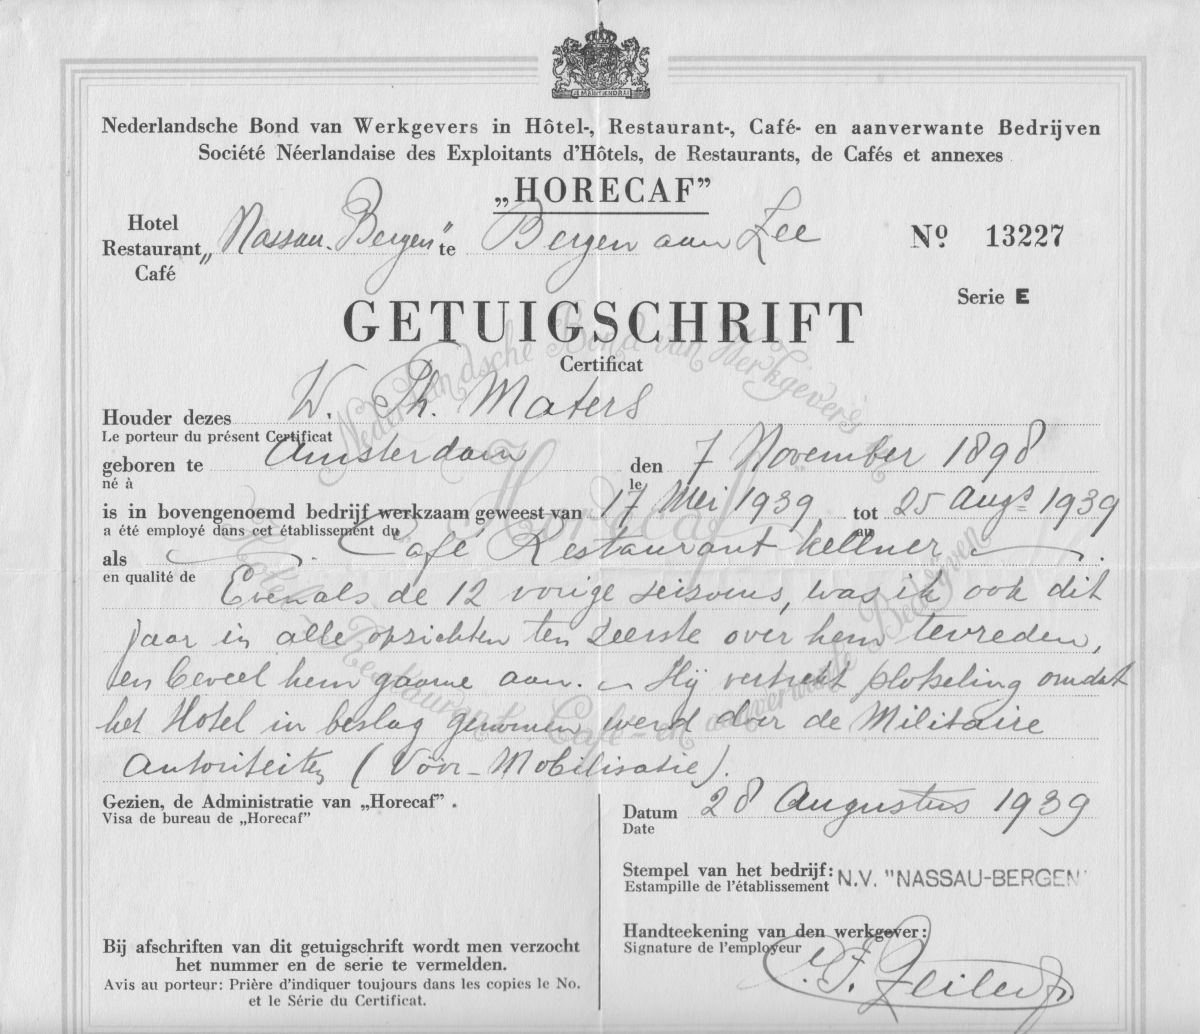 JE MAINTIENDRAI
Nederlandsche Bond van Werkgevers in Hôtel-, Restaurant-, Café- en aanverwante Bedrijven
Société Néerlandaise des Exploitants d'Hôtels, de Restaurants, de Cafés et annexes
„HORECAF”
Hotel
Restaurant „Nassau-Bergen” te Bergen aan Zee
Café
No. 13227
Serie E
GETUIGSCHRIFT
Certificat
Houder dezes W. Ph. Maters
Le porteur du présent Certificat
geboren te Amsterdam den 7 November 1898
né à le
is in bovengenoemd bedrijf werkzaam geweest van 17 Mei 1939 tot 25 Augs 1939
a été employé dans cet établissement du au
als Café Restaurant kellner
en qualité de
Evenals de 12 vorige seizoens, was ik ook dit
jaar in alle opzichten ten zeerste over hem tevreden,
en beveel hem gaarne aan. Hij vertrekt plotseling omdat
het Hotel in beslag genomen werd door de Militaire
Autoriteiten (Vóór-Mobilisatie).
Gezien, de Administratie van „Horecaf”.
Visa de bureau de „Horecaf”
Datum 28 Augustus 1939
Date
Stempel van het bedrijf: N.V. "NASSAU-BERGEN"
Estampille de l'établissement
Handteekening van den werkgever:
Signature de l'employeur
Bij afschriften van dit getuigschrift wordt men verzocht
het nummer en de serie te vermelden.
Avis au porteur: Prière d'indiquer toujours dans les copies le No.
et le Série du Certificat.
Nederlandsche Bond van Werkgevers in
Hotel-, Restaurant-, Café- en aanverwante Bedrijven
Horecaf